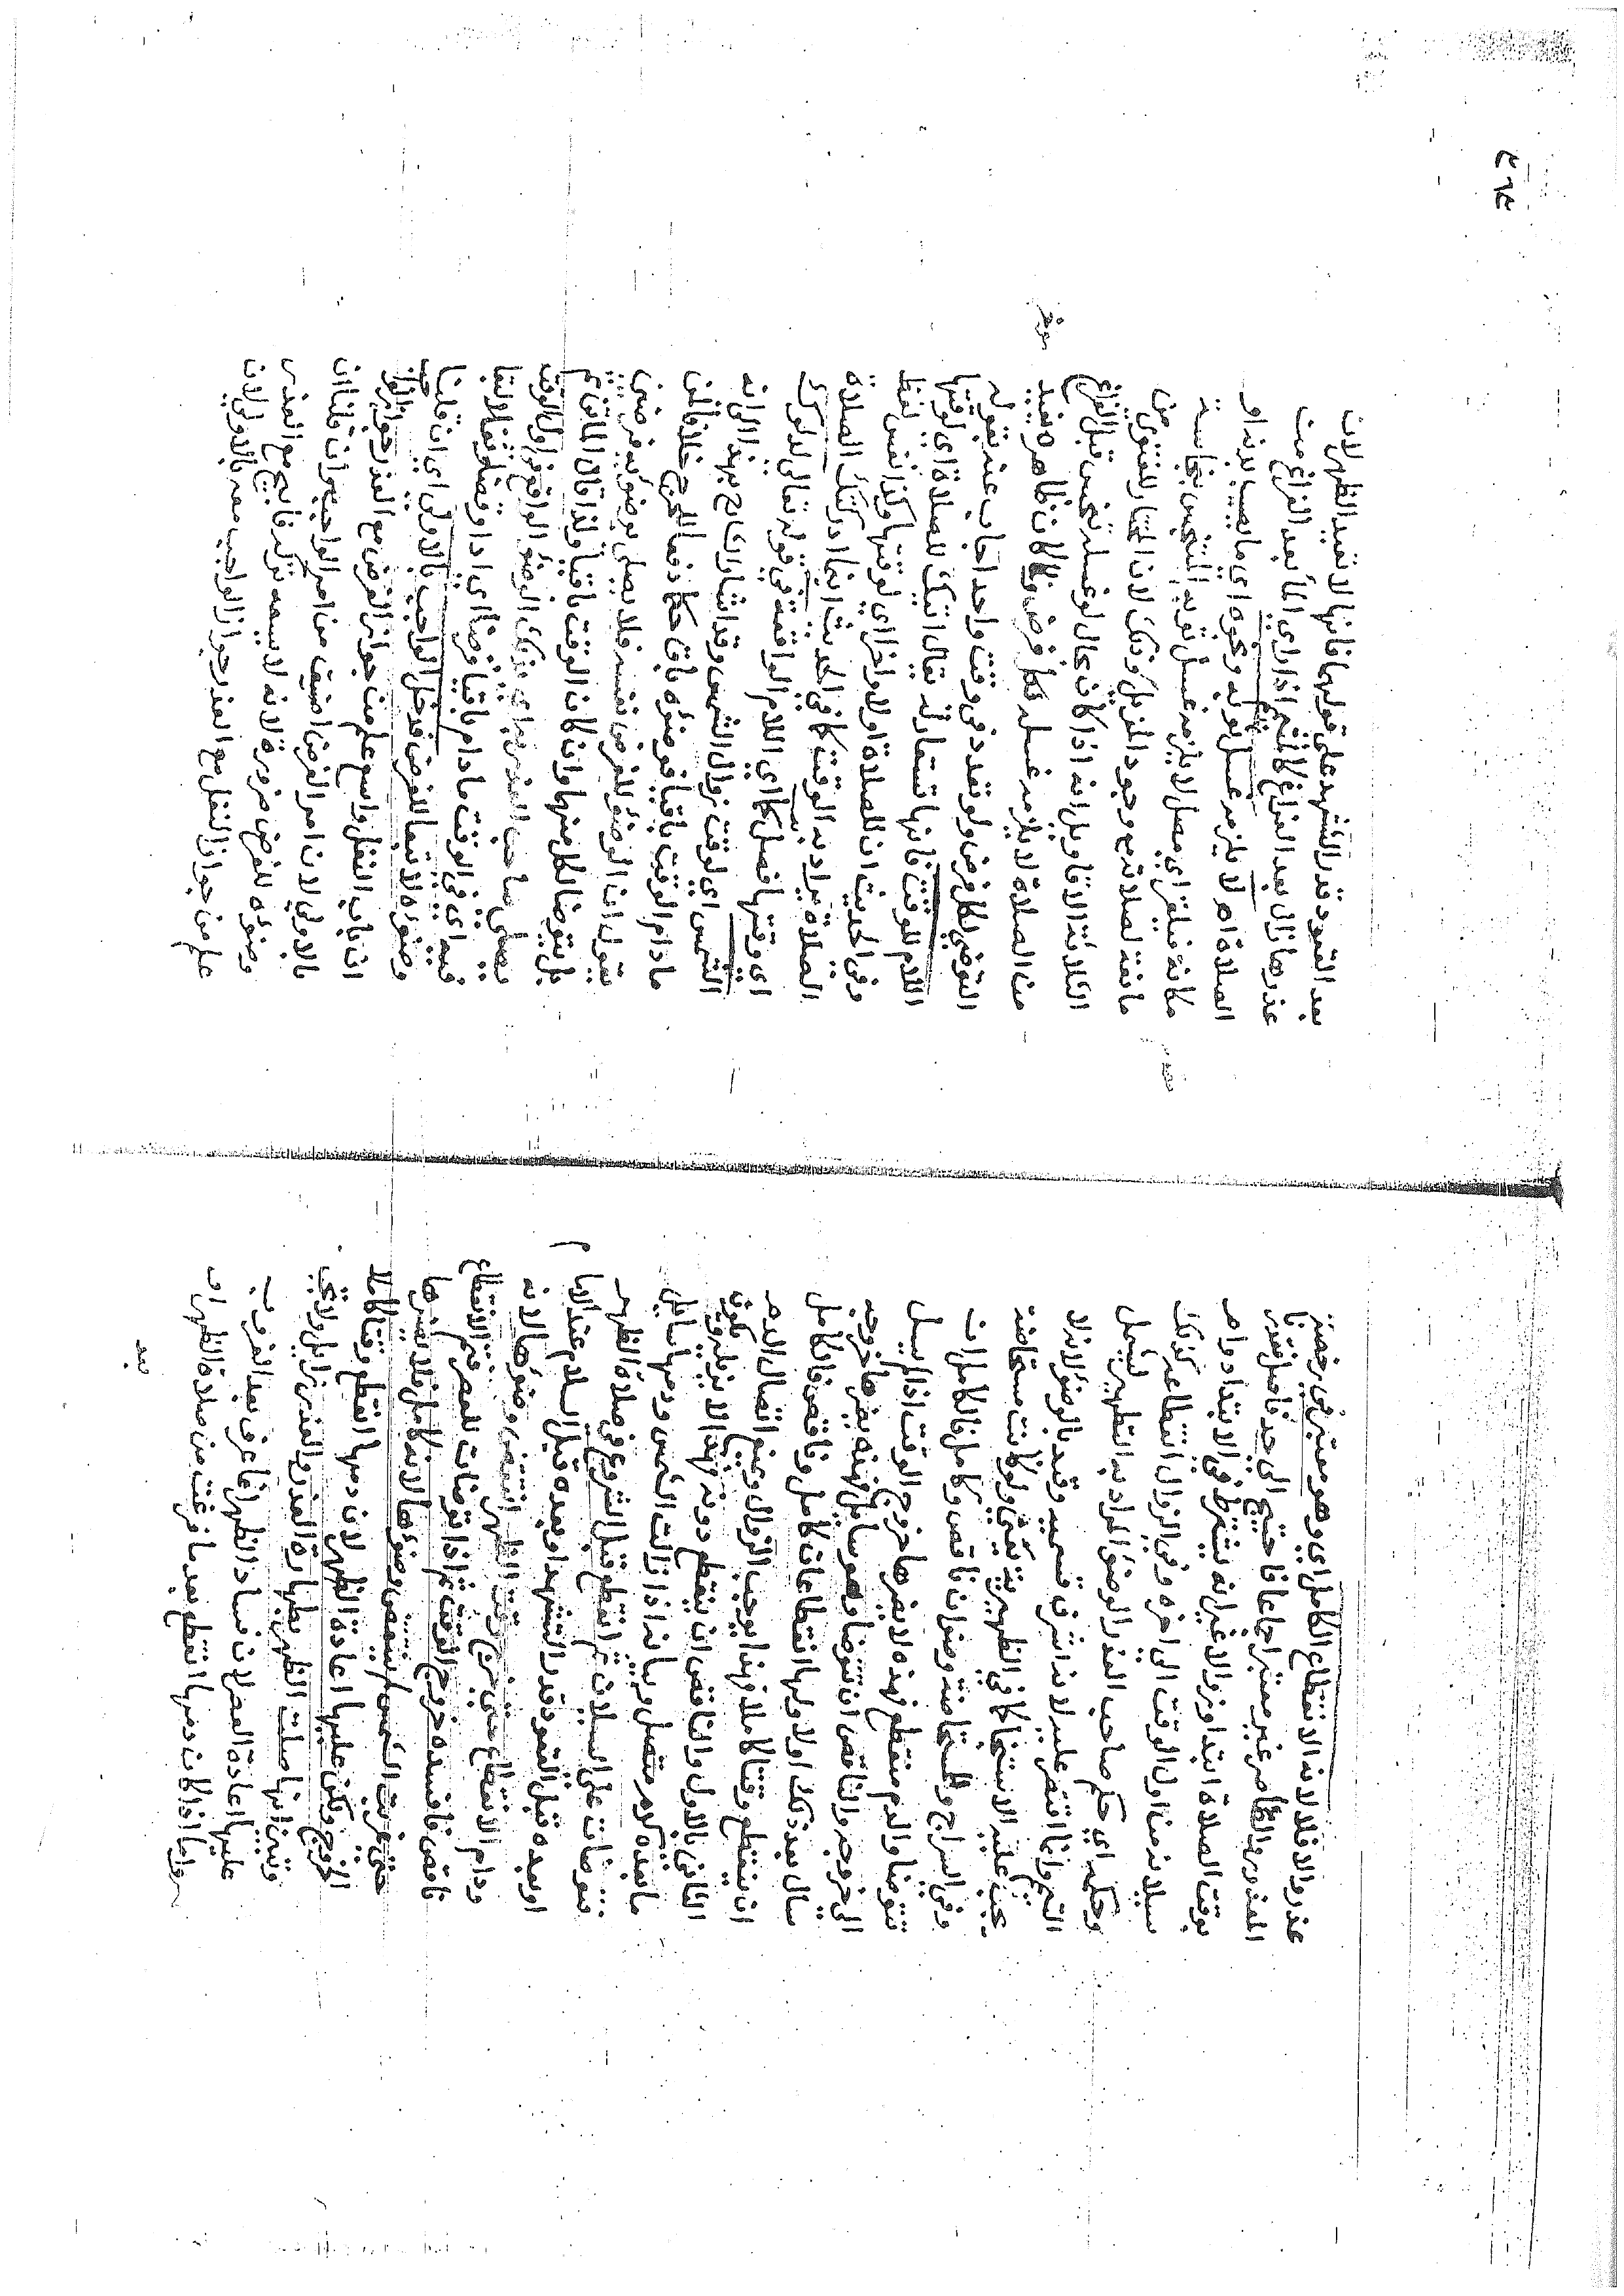 عذر والا فلا لان الانقطاع الكامل اي وهو معتبر في رخصة
المعذور والقاصر غير معتبر اجماعا فاحتيج الى حد فاصل فقدرنا
بوقت الصلاة ابتدا وزوالا غير انه يشترط في الابتدا دوام
سيلانه من اول الوقت الى اخره وفي الزوال انقطاعه كذلك
وحكمه اي حكم صاحب العذر الوضوء المراد به التطهير ليشمل
التيمم وانما اقتصر عليه لانه اشرف قسميه وقيد بالوضوء لانه لا
يجب عليه الاستنجا كما في الظهيرية يعني ولو كانت مستحاضة
وفي السراج وللمستحاضة وضوان ناقص وكامل فالكامل ان
تتوضا والدم منقطع فهذه لا يضرها خروج الوقت اذا لم يسل
الى خروجه والناقص ان تتوضا وهو سايل فهذه يضرها خروجه
سال بعد ذلك او لا ولها انقطاعان كامل وناقص فالكامل
ان ينقطع وقتا كاملا فهذا يوجب الزوال ويمنع اتصال الدم
الثاني بالاول والناقص ان ينقطع دونه فهذا لا يزيله ويكون
ما بعده كدم متصل وبيانه اذا زالت الشمس ودمها سايل
فتوضات على السيلان ثم انقطع قبل الشروع في صلاة الظهر
او بعده قبل القعود قدر التشهد او بعده قبل السلام عند الامام
ودام الانقطاع حتى خرج وقت الظهر انتقض وضوءها لانه
ناقص فافسده خروج الوقت ثم اذا توضات للعصر فتم الانقطاع
حتى غربت الشمس لم ينتقض وضوءها لانه كامل فلا يضرها
الخروج ولكن عليها اعادة الظهر لان دمها انقطع وقتا كاملا
وتبين انها صلت الظهر بطهارة العذر والعذر زايل ولا يجب
عليها اعادة العصر لان فساد الظهر انما عرف بعد الغروب
واما اذا كان دمها انقطع بعد ما فرغت من صلاة الظهر او
بعد
بعد القعود قدر التشهد على قولهما فانها لا تعيد الظهر لان
عذرها زال بعد الفراغ كالمتيمم اذا راي الماء بعد الفراغ من
الصلاة اهـ لا يلزمه غسل ثوبه ونحوه اي ما يصيب بدنه او
مكانه اي مصل لا يلزمه غسل ثوبه المتنجس بنجاسة
مانعة لصلاته مع وجود المزيل وذلك لان المختار للفتوى من
الثلاثة الاقاويل انه اذا كان بحال لو غسله تنجس قبل الفراغ
من الصلاة لا يلزمه غسله لكل فرض ولما كان ظاهره يفيد
التوضي لكل فرض ولو تعدد في وقت واحد اجاب عنه بقوله
اللام للوقت فانها تستعار له يقال اتيتك للصلاة اي لوقتها
وفي الحديث ان للصلاة اولا واخرا اي لوقتها وكذا نفس لفظ
الصلاة يراد به الوقت كما في الحديث اينما ادركتك الصلاة
اي وقتها فصل كما اي اللام الواقعة في قوله تعالى لدلوك
الشمس اي لوقت زوال الشمس وقد اشار الشارح بهذا الى انه
ما دام الوقت باقيا فوضوءه باق حكما دفعا للحرج خلافا لمن
يقول ان الوضوء للفرض نفسه فلا يصلي بوضوئه فرضين
بل يتوضا لكل منهما وان كان الوقت باقيا ولذا قال الماتن ثم
يصلي صاحب العذر به اي بذلك الوضوء الواقع في اول الوقت
فيه اي في الوقت ما دام باقيا فرضا اي ادا او قضا ونفلا
للفرض فدخل الواجب بالاولى اي ان قلنا
ان باب النفل واسع علم من جواز الفرض مع العذر جواز
بالاولى لان امر الفرض اضيق من امر الواجب وان قلنا ان
وضوءه للفرض ضرورة لانه لا يسعه تركه فابيح مع العذر
علم من جواز النفل مع العذر جواز الواجب معه بالاولى لان